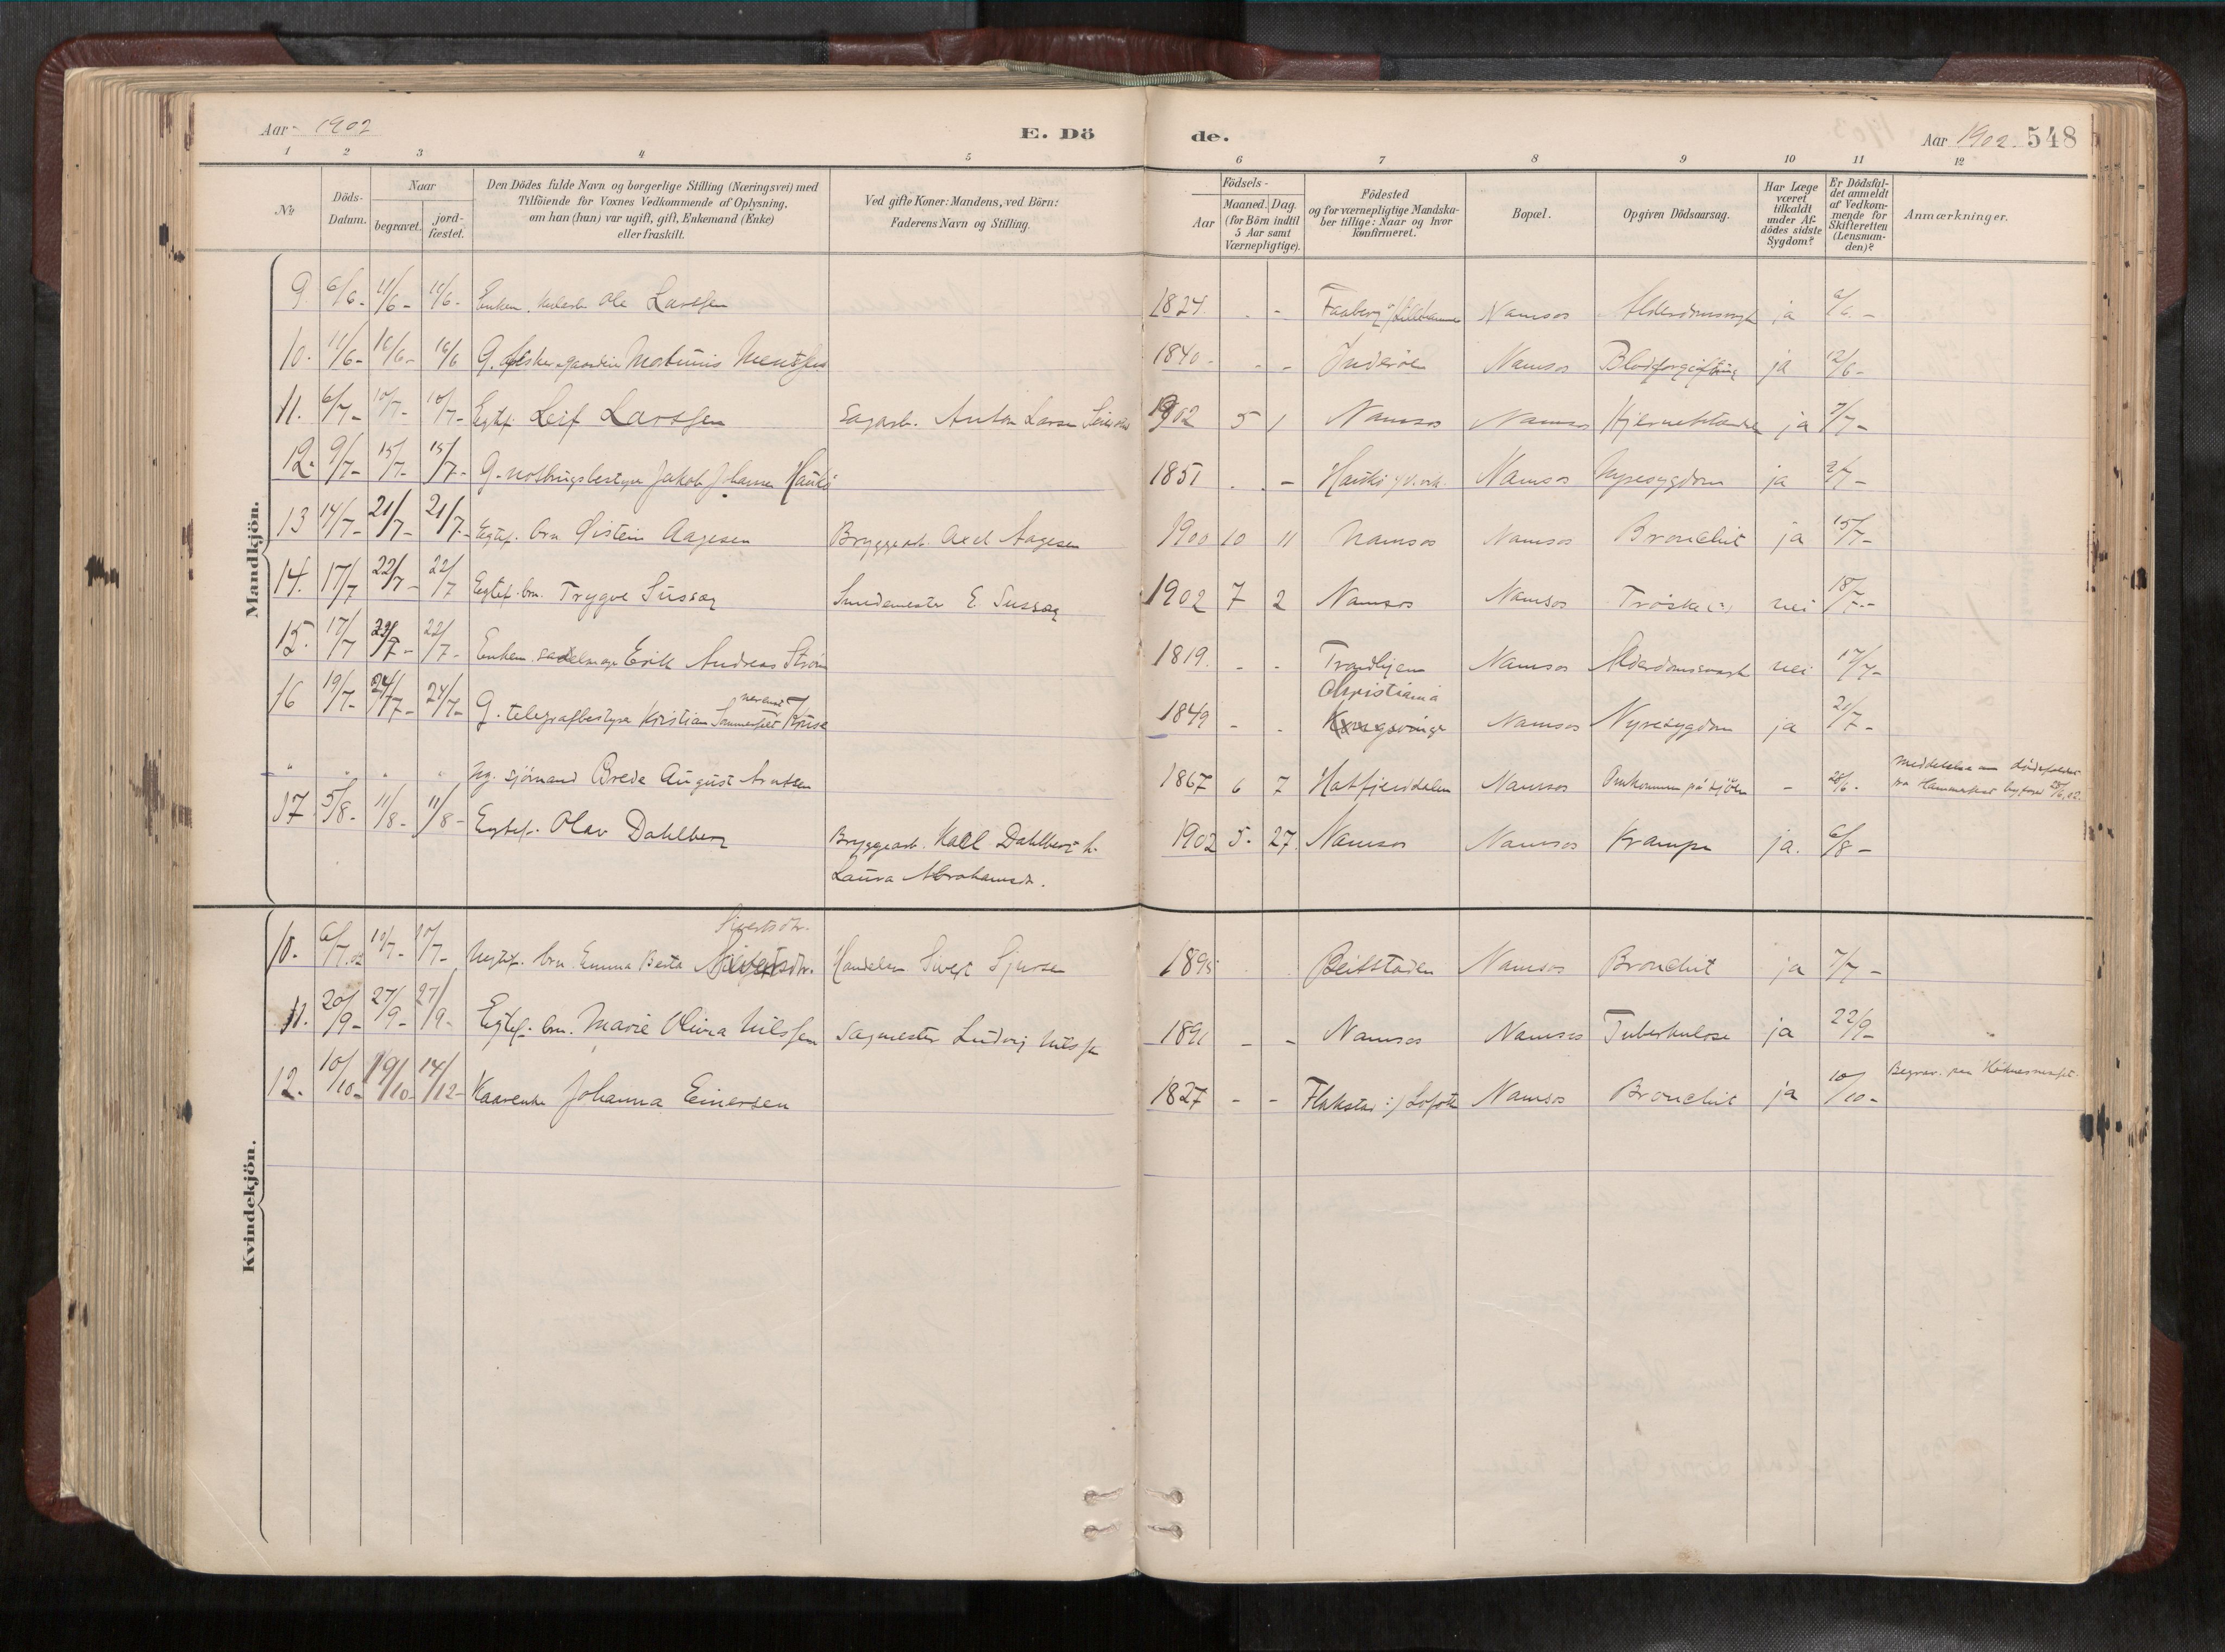 Aar 1902 E. Dö de. Aar 1902 548
1 2 3 4 5 6 7 8 9 10 11 12
No.
Döds-Datum.
Naar
begravet. jord-fæstet.
Den Dödes fulde Navn og borgerlige Stilling (Næringsvei) med
Tilföiende for Voxnes Vedkommende af Oplysning,
om han (hun) var ugift, gift, Enkemand (Enke)
eller fraskilt.
Ved gifte Koner: Mandens, ved Börn:
Faderens Navn og Stilling.
Födsels-
Aar
Maaned. Dag.
(for Börn indtil
5 Aar samt
Værnepligtige).
Födested
og for værnepligtige Mandska-
ber tillige: Naar og hvor
konfirmeret.
Bopæl.
Opgiven Dödsaarsag.
Har Læge
været
tilkaldt
under Af-
dödes sidste
Sygdom?
Er Dödsfal-
det anmeldt
af Vedkom-
mende for
Skifteretten
(Lensman-
den)?
Anmærkninger.
Mandkjön.
9 6/6- 11/6- 11/6- Enkem. Ole Larssen 1824. - - Faaberg Namsos Alderdomssvagh ja 6/6-
10. 11/6- 16/6- 16/6 G. Mortinus Mentzen 1840- - - Inderøen Namsos Blodforgiftning ja 12/6-
11. 6/7- 10/7- 10/7- Egtef. Leif Larssen Sagarb. Anton Larsen 1902 5 1 Namsos Namsos ja 7/7-
12. 9/7- 15/7- 15/7- G. notbrugsbestyrer Jakob Johannes Haukø 1851 . - Namsos Nyresygdom ja 9/7-
13 14/7- 21/7- 21/7- Egtef. brn Øistein Aagesen Bryggearb. Axel Aagesen 1900 10 11 Namsos Namsos Bronchit ja 15/7-
14. 17/7 22/7- 22/7 Egtef. brn. Trygve Sussæg Smedemester E. Sussæg 1902 7 2 Namsos Namsos Trøske (?) nei 18/7-
15. 17/7 22/7- 22/7- Enkem. sadelmager Erik Andreas Strøm 1819. - - Trondhjem Namsos Alderdomssvagh nei 17/7-
16 19/7- 24/7- 24/7- G. telegrafbestyrer Kristian Sommerfelt Kruse 1849 - - Christiania Namsos Nyresygdom ja 21/7-
" " " " Ug. sjømand Brede August Arntsen 1867 6 7 Hatfjelddalen Namsos Omkommen på sjøen - 28/6- Meddelelse om dødsfaldet
17 5/8- 11/8- 11/8- Egtef. Olav Dahlberg Bryggearb. Karl Dahlberg h. 1902 5. 27. Namsos Namsos Krampe ja. 6/8-
Laura Abrahamsdr.
Kvindekjön.
Sivertsdtr.
10. 6/7.02 10/7- 10/7- Uegtef. brn Emma Berta Handelsm Sivert Sjursen 1895 Beitstaden Namsos Bronchit ja 7/7-
11. 20/9- 27/9- 27/9- Egtef. brn. Marie Olivia Nilssen Sagmester Ludvig Nilssen 1891 - - Namsos Namsos Tuberkulose ja 22/9-
12. 10/10- 19/10- 14/12- Kaarenke Johanna Einersen 1827 - - Flakstad i/ Lofoten Namsos Bronchit ja 10/10- Begrav. paa